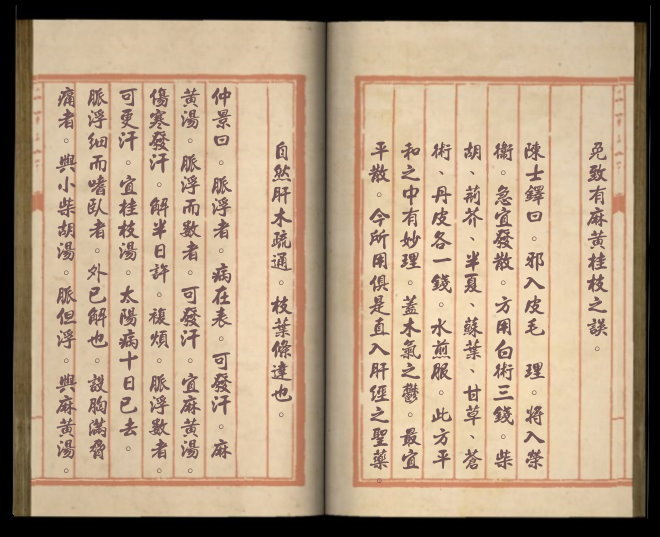 免致有麻黃桂枝之誤。
陳士鐸曰。邪入皮毛 理。將入榮
衛。急宜發散。方用白術三錢。柴
胡、荊芥、半夏、蘇葉、甘草、蒼
術、丹皮各一錢。水煎服。此方平
和之中有妙理。蓋木氣之鬱。最宜
平散。今所用俱是直入肝經之聖藥。
自然肝木疏通。枝葉條達也。
仲景曰。脈浮者。病在表。可發汗。麻
黃湯。脈浮而數者。可發汗。宜麻黃湯。
傷寒發汗。解半日許。複煩。脈浮數者。
可更汗。宜桂枝湯。太陽病十日已去。
脈浮細而嗜臥者。外已解也。設胸滿脅
痛者。與小柴胡湯。脈但浮。與麻黃湯。